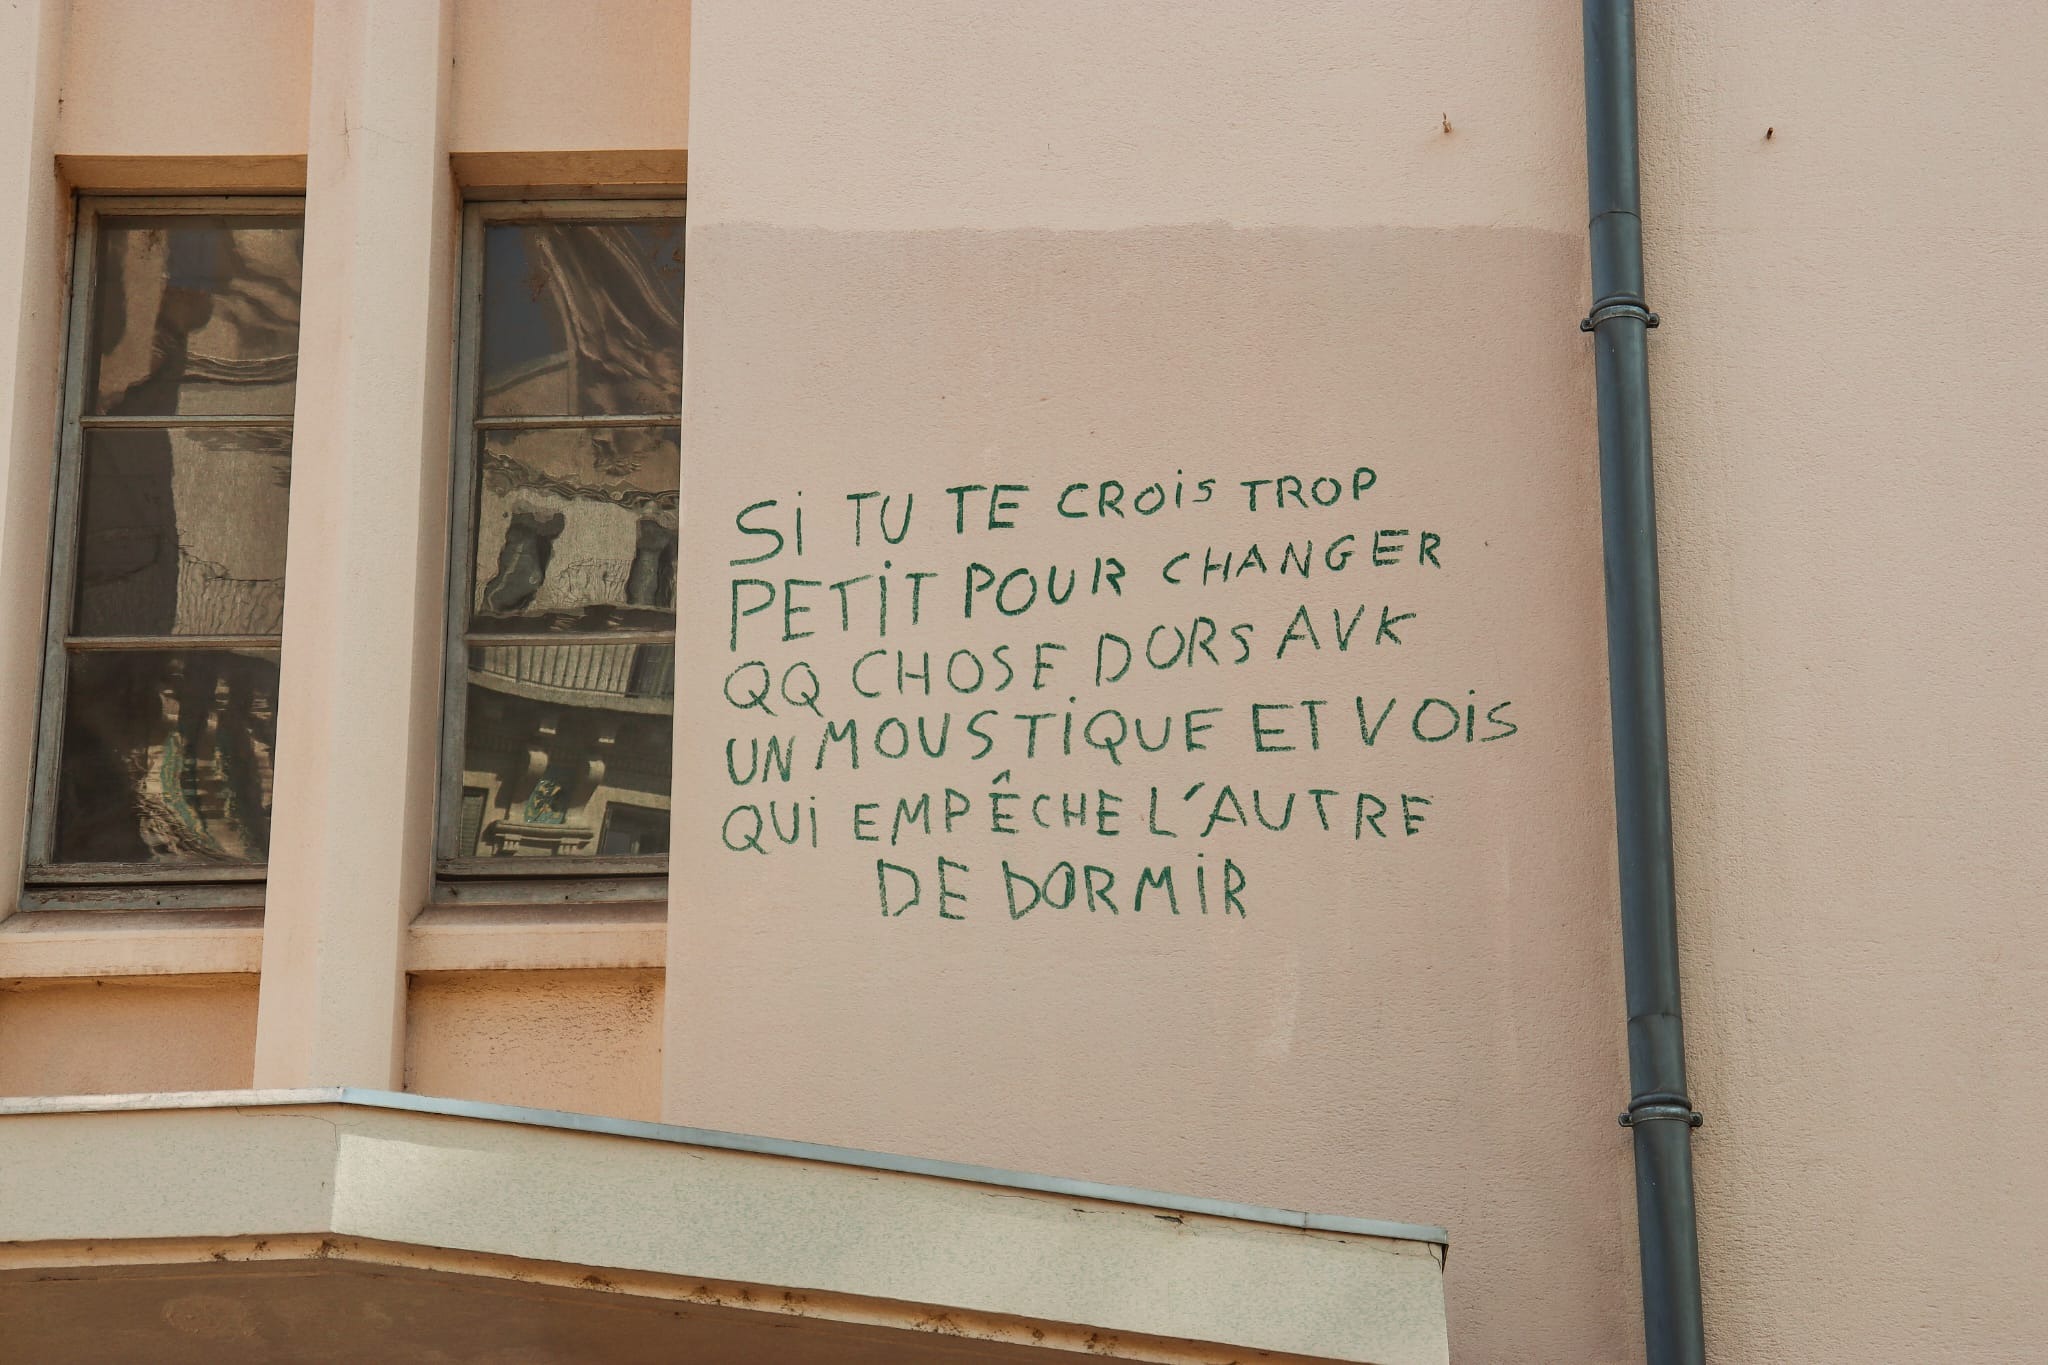 Si TU TE CROiS TROP
PETiT POUR CHANGER
QQ CHOSE DORS AVK
UN MOUSTiQUE ET VOiS
QUi EMPÊCHE L'AUTRE
DE DORMiR